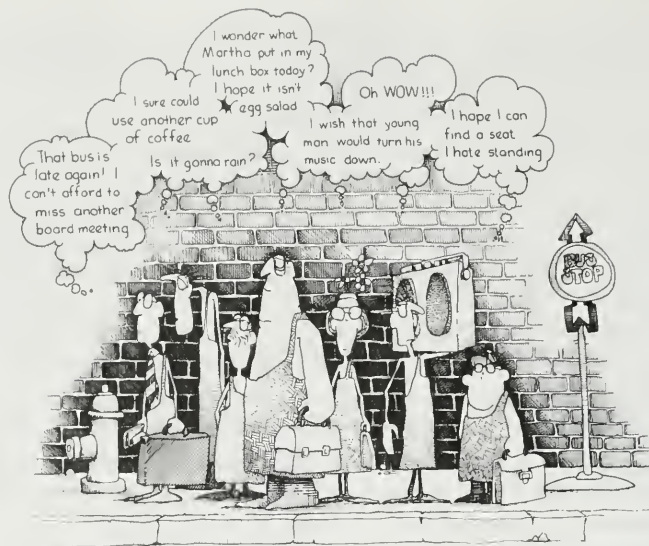 That bus is
late again! I
can't afford to
miss another
board meeting
I sure could
use another cup
of coffee
Is it gonna rain?
I wonder what
Martha put in my
lunch box today?
I hope it isn't
egg salad
I wish that young
man would turn his
music down.
Oh WOW!!!
I hope I can
find a seat
I hate standing
BUS
STOP